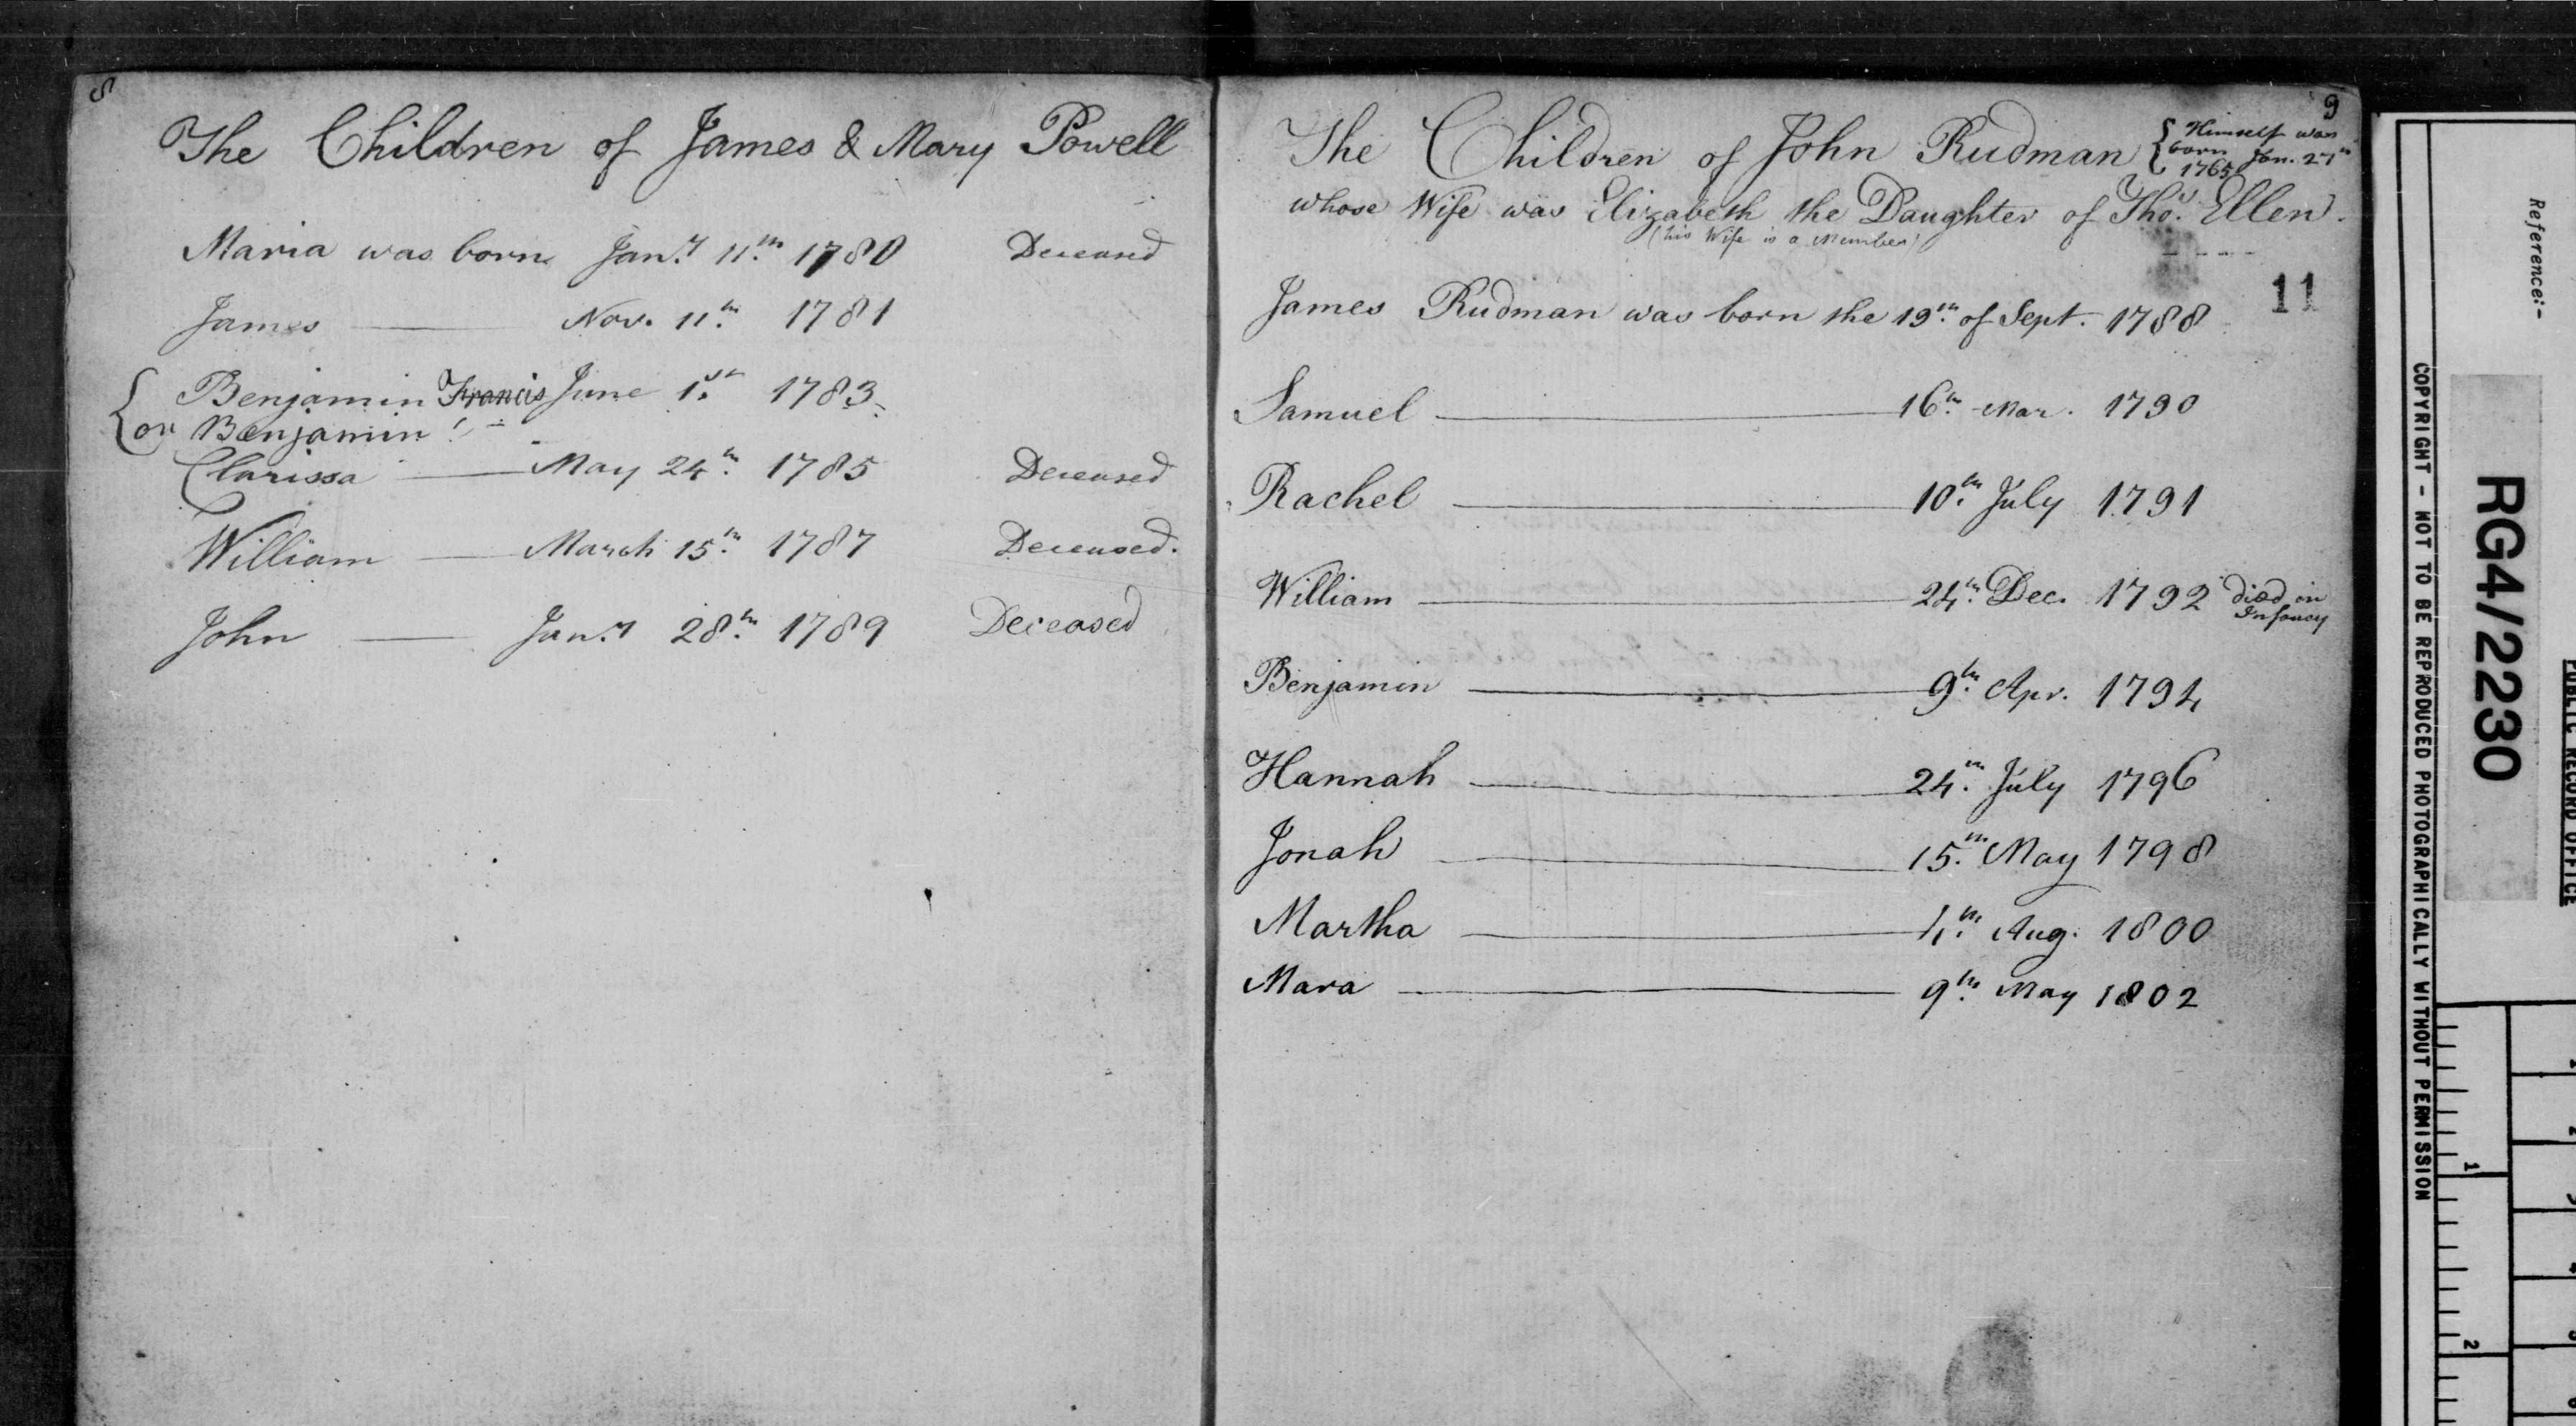 8
The Children of James & Mary Powell
Maria was born Jan.y 11.th 1780 Deceased
James Nov. 11.th 1781
Benjamin Francis June 1.st 1783
or Benjamin
Clarissa May 24.th 1785 Deceased
William March 15.th 1787 Deceased.
John Jan.y 28.th 1789 Deceased
9
The Children of John Rudman { Himself was
born Jan. 27th
1765
whose Wife was Elizabeth the Daughter of Tho.s Ellen.
(his Wife is a Member)
11
James Rudman was born the 19.th of Sept. 1788
Samuel 16.th Mar. 1790
Rachel 10.th July 1791
William 24.th Dec. 1792 died in
Infancy
Benjamin 9.th Apr. 1794
Hannah 24.th July 1796
Jonah 15.th May 1798
Martha 4.th Aug. 1800
Mara 9.th May 1802
Reference:-
RG4/2230
PUBLIC RECORD OFFICE
COPYRIGHT - NOT TO BE REPRODUCED PHOTOGRAPHICALLY WITHOUT PERMISSION
1
2